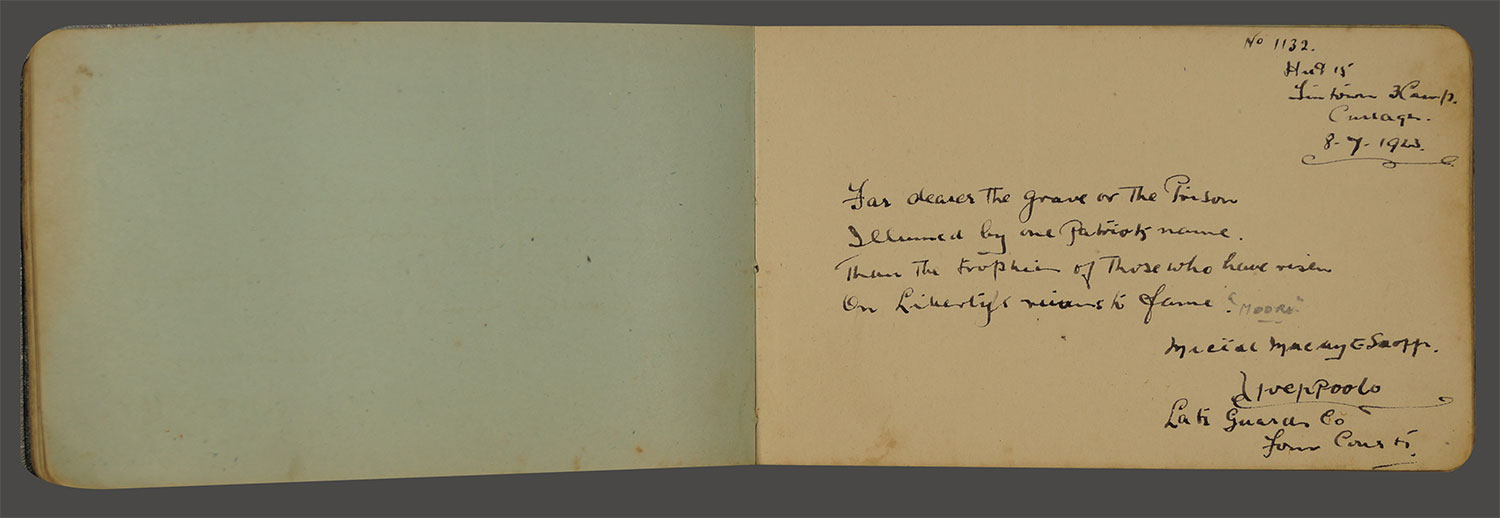 No 1132.
Hut 15
Tintown 3 Camp.
Curragh.
8-7-1923.
Far dearer the grave or the Prison
Illumed by one Patriots name.
Than the trophies of those who have risen
On Liberty's ruins to fame. "MOORE"
Mícéal
Liverpoolo
Late Guards Co
Four Courts.